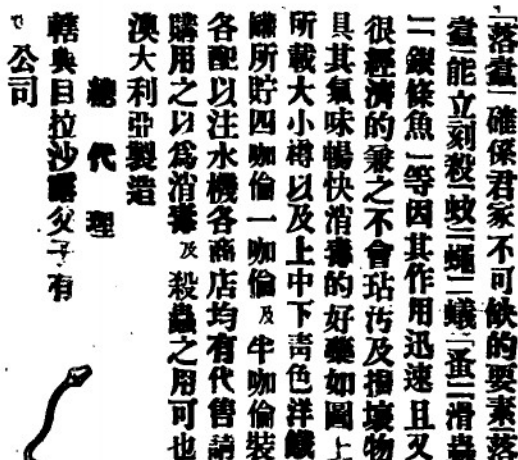 「落蠧」確係君家不可缺的要素「落
蠧」能立刻殺「蚊」「蠅」「蟻」「蚤」「滑蟲
」「銀條魚」等因其作用迅速且又
很經濟的兼之不會玷污及損壞物
具其氣味暢快消毒的好藥如圖上
所載大小樽以及上中下靑色洋鐵
罐所貯四咖倫一咖倫及半咖倫裝
各配以注水機各商店均有代售請
購用之以爲消毒及殺蟲之用可也
澳大利亞製造
總代理
轄典目拉沙羅父子有
公司